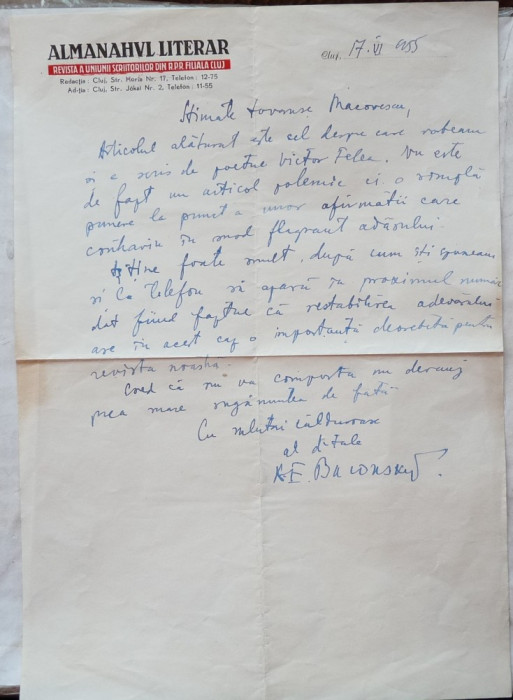 ALMANAHUL LITERAR
REVISTA A UNIUNII SCRIITORILOR DIN R.P.R. FILIALA CLUJ
Redacția : Cluj, Str. Horia Nr. 17, Telefon : 12-75
Ad-ția : Cluj, Str. Jókai Nr. 2, Telefon : 11-55
Cluj, 17. VI 955
Stimate tovarășe Macovescu,
Articolul alăturat este cel despre care vorbeam
și a scris de poetul Victor Felea. Nu este
de fapt un articol polemic ci o simplă
punere la punct a unor afirmații care
contravin în mod flagrant adevărului.
Țin foarte mult, după cum ți spuneam
și la telefon să apară în proximul număr
dat fiind faptul că restabilirea adevărului
are în acest caz o importanță deosebită pentru
revista noastră.
Cred că nu va comporta un deranj
prea mare rugămintea de față
Cu salutări călduroase
al d-tale
A.E. Baconsky.